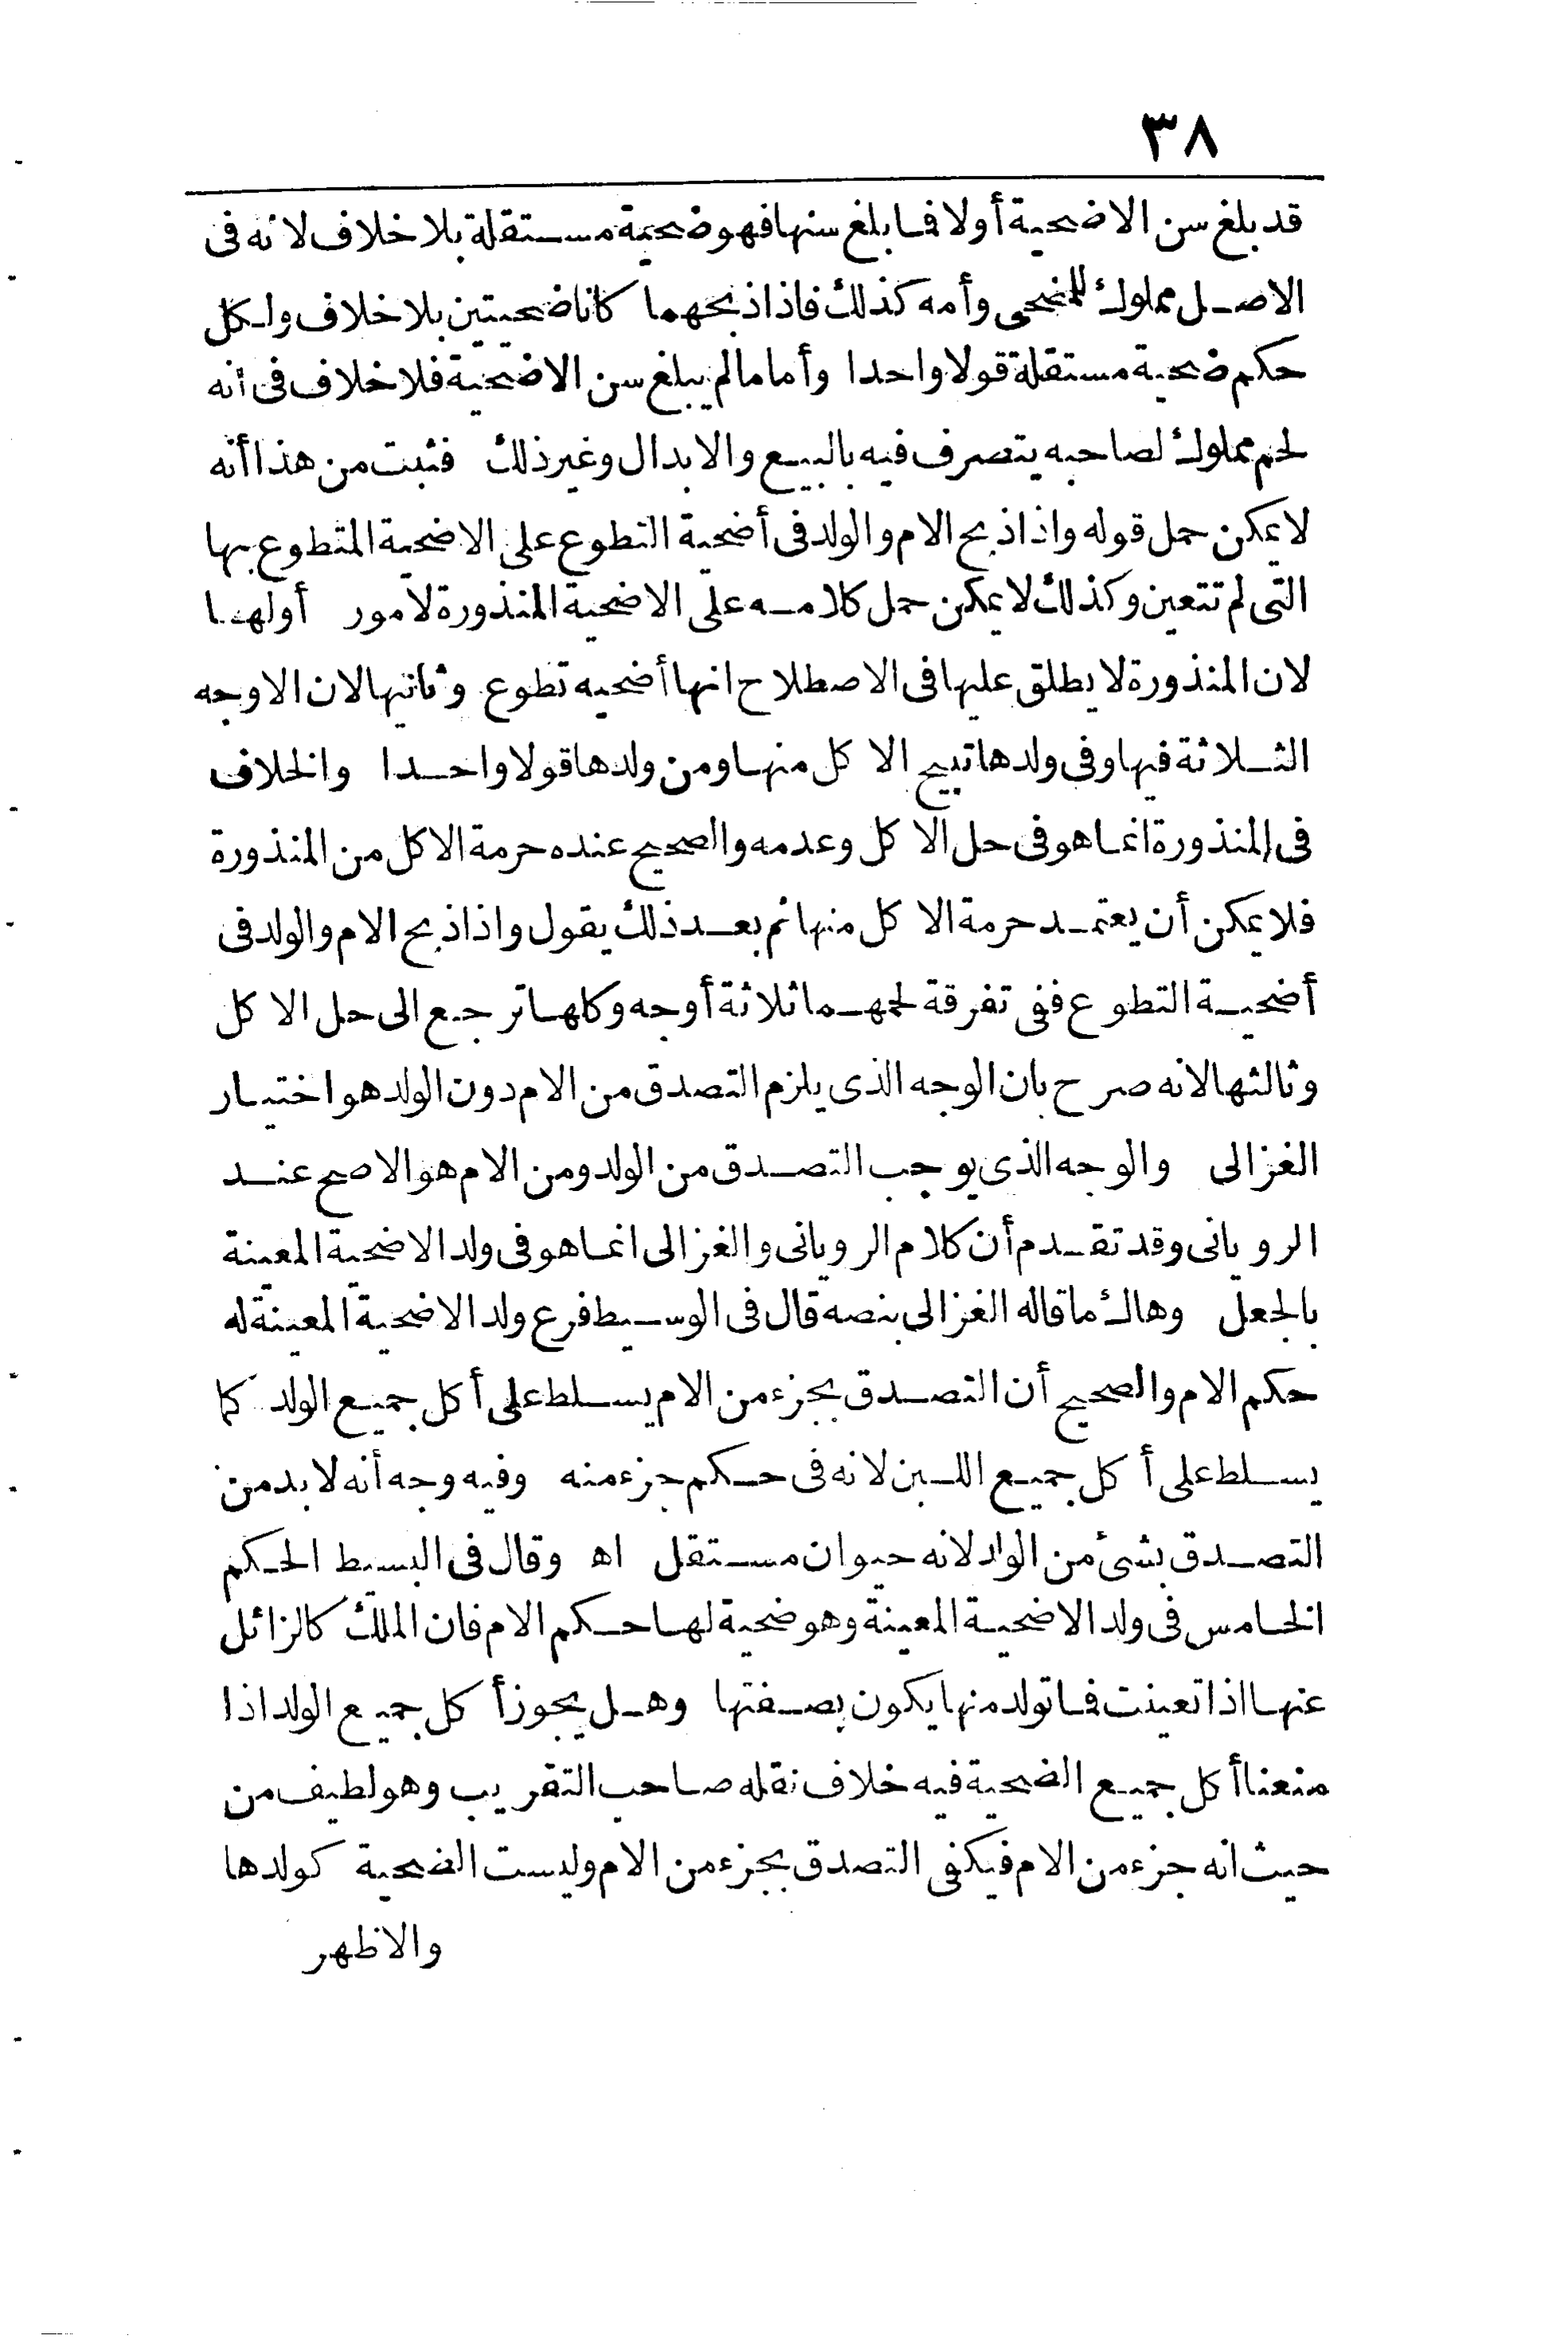 ٣٨
قد بلغ سن الاضحية أولا فما بلغ سنها فهو ضحية مستقلة بلا خلاف لانه فى
الاصل مملوك للمضحى وأمه كذلك فاذا ذبحهما كانا ضحيتين بلا خلاف ولكل
حكم ضحية مستقلة قولا واحدا وأما ما لم يبلغ سن الاضحية فلا خلاف فى أنه
لحم مملوك لصاحبه يتصرف فيه بالبيع والابدال وغير ذلك فثبت من هذا أنه
لا يمكن حمل قوله واذا ذبح الام والولد فى أضحية التطوع على الاضحية المتطوع بها
التى لم تتعين وكذلك لا يمكن حمل كلامه على الاضحية المنذورة لامور أولها
لان المنذورة لا يطلق عليها فى الاصطلاح انها أضحيه تطوع وثانيها لان الاوجه
الثلاثة فيها وفى ولدها تبيح الاكل منها ومن ولدها قولا واحدا والخلاف
فى المنذورة انما هو فى حل الاكل وعدمه والصحيح عنده حرمة الاكل من المنذورة
فلا يمكن أن يعتمد حرمة الاكل منها ثم بعد ذلك يقول واذا ذبح الام والولد فى
أضحية التطوع ففى تفرقة لحمهما ثلاثة أوجه وكلها ترجع الى حل الاكل
وثالثها لانه صرح بان الوجه الذى يلزم التصدق من الام دون الولد هو اختيار
الغزالى والوجه الذى يوجب التصدق من الولد ومن الام هو الاصح عند
الرويانى وقد تقدم أن كلام الرويانى والغزالى انما هو فى ولد الاضحية المعينة
بالجعل وهاك ما قاله الغزالى بنصه قال فى الوسيط فرع ولد الاضحية المعينة له
حكم الام والصحيح أن التصدق بجزء من الام يسلط على أكل جميع الولد كما
يسلط على أكل جميع اللبن لانه فى حكم جزء منه وفيه وجه أنه لا بد من
التصدق بشئ من الولد لانه حيوان مستقل اه وقال فى البسيط الحكم
الخامس فى ولد الاضحية المعينة وهو ضحية لها حكم الام فان الملك كالزائل
عنها اذا تعينت فما تولد منها يكون بصفتها وهل يجوز أكل جميع الولد اذا
منعنا أكل جميع الضحية فيه خلاف نقله صاحب التقريب وهو لطيف من
حيث انه جزء من الام فيكفى التصدق بجزء من الام وليست الضحية كولدها
والاظهر